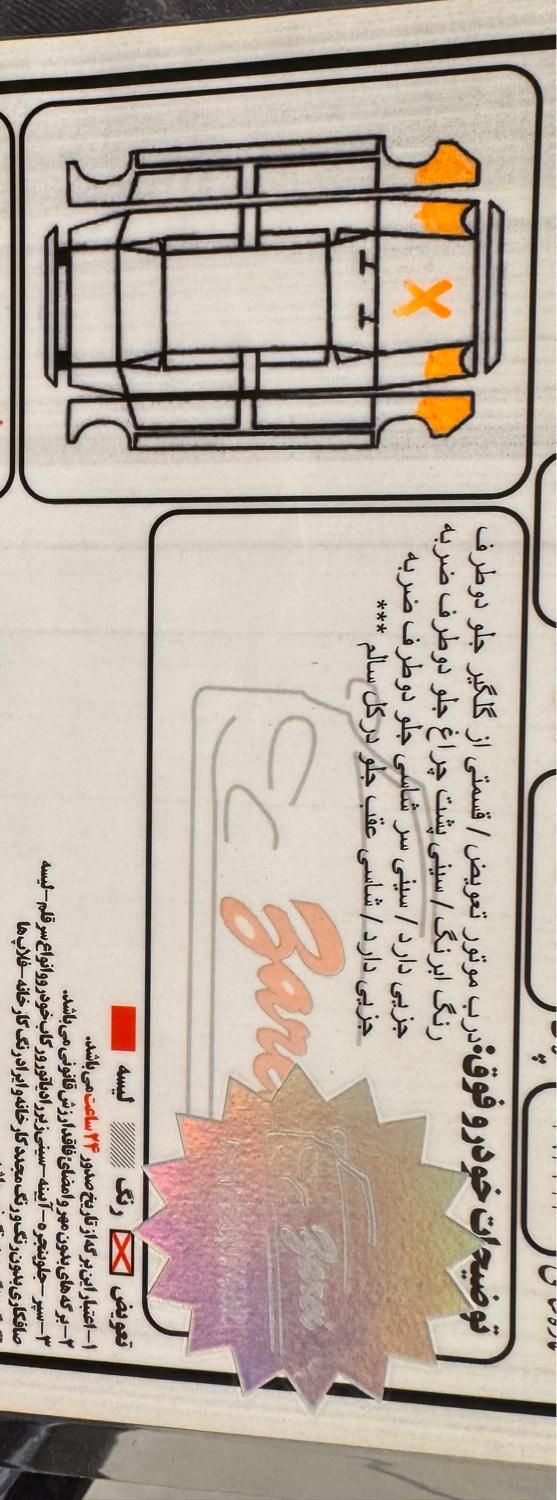 توضیحات خودرو فوق: درب موتور تعویض / قسمتی از گلگیر جلو دو طرف
رنگ ابرنگ / سینی پشت چراغ جلو دو طرف ضربه
جزیی دارد / سینی سر شاسی جلو دو طرف ضربه
جزیی دارد / شاسی عقب جلو در کل سالم ***
Zare
تعویض رنگ لیسه
۱- اعتبار این برگه از تاریخ صدور ۲۴ ساعت می باشد.
۲- برگه های بدون مهر و امضای فاقد ارزش قانونی می باشد.
۳- سپر - جلوپنجره - آیینه - سینی زیر رادیاتور و رکاب خودرو و انواع سر قلم - لیسه
صافکاری بدون رنگ و رنگ مجدد کارخانه و ایراد رنگ کارخانه - قلاب ها